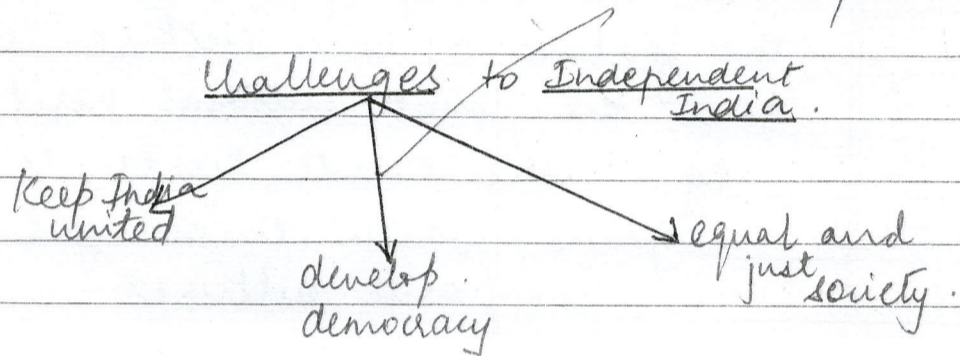 Challenges to Independent
India.
Keep India
united
develop
democracy
equal and
just
society.